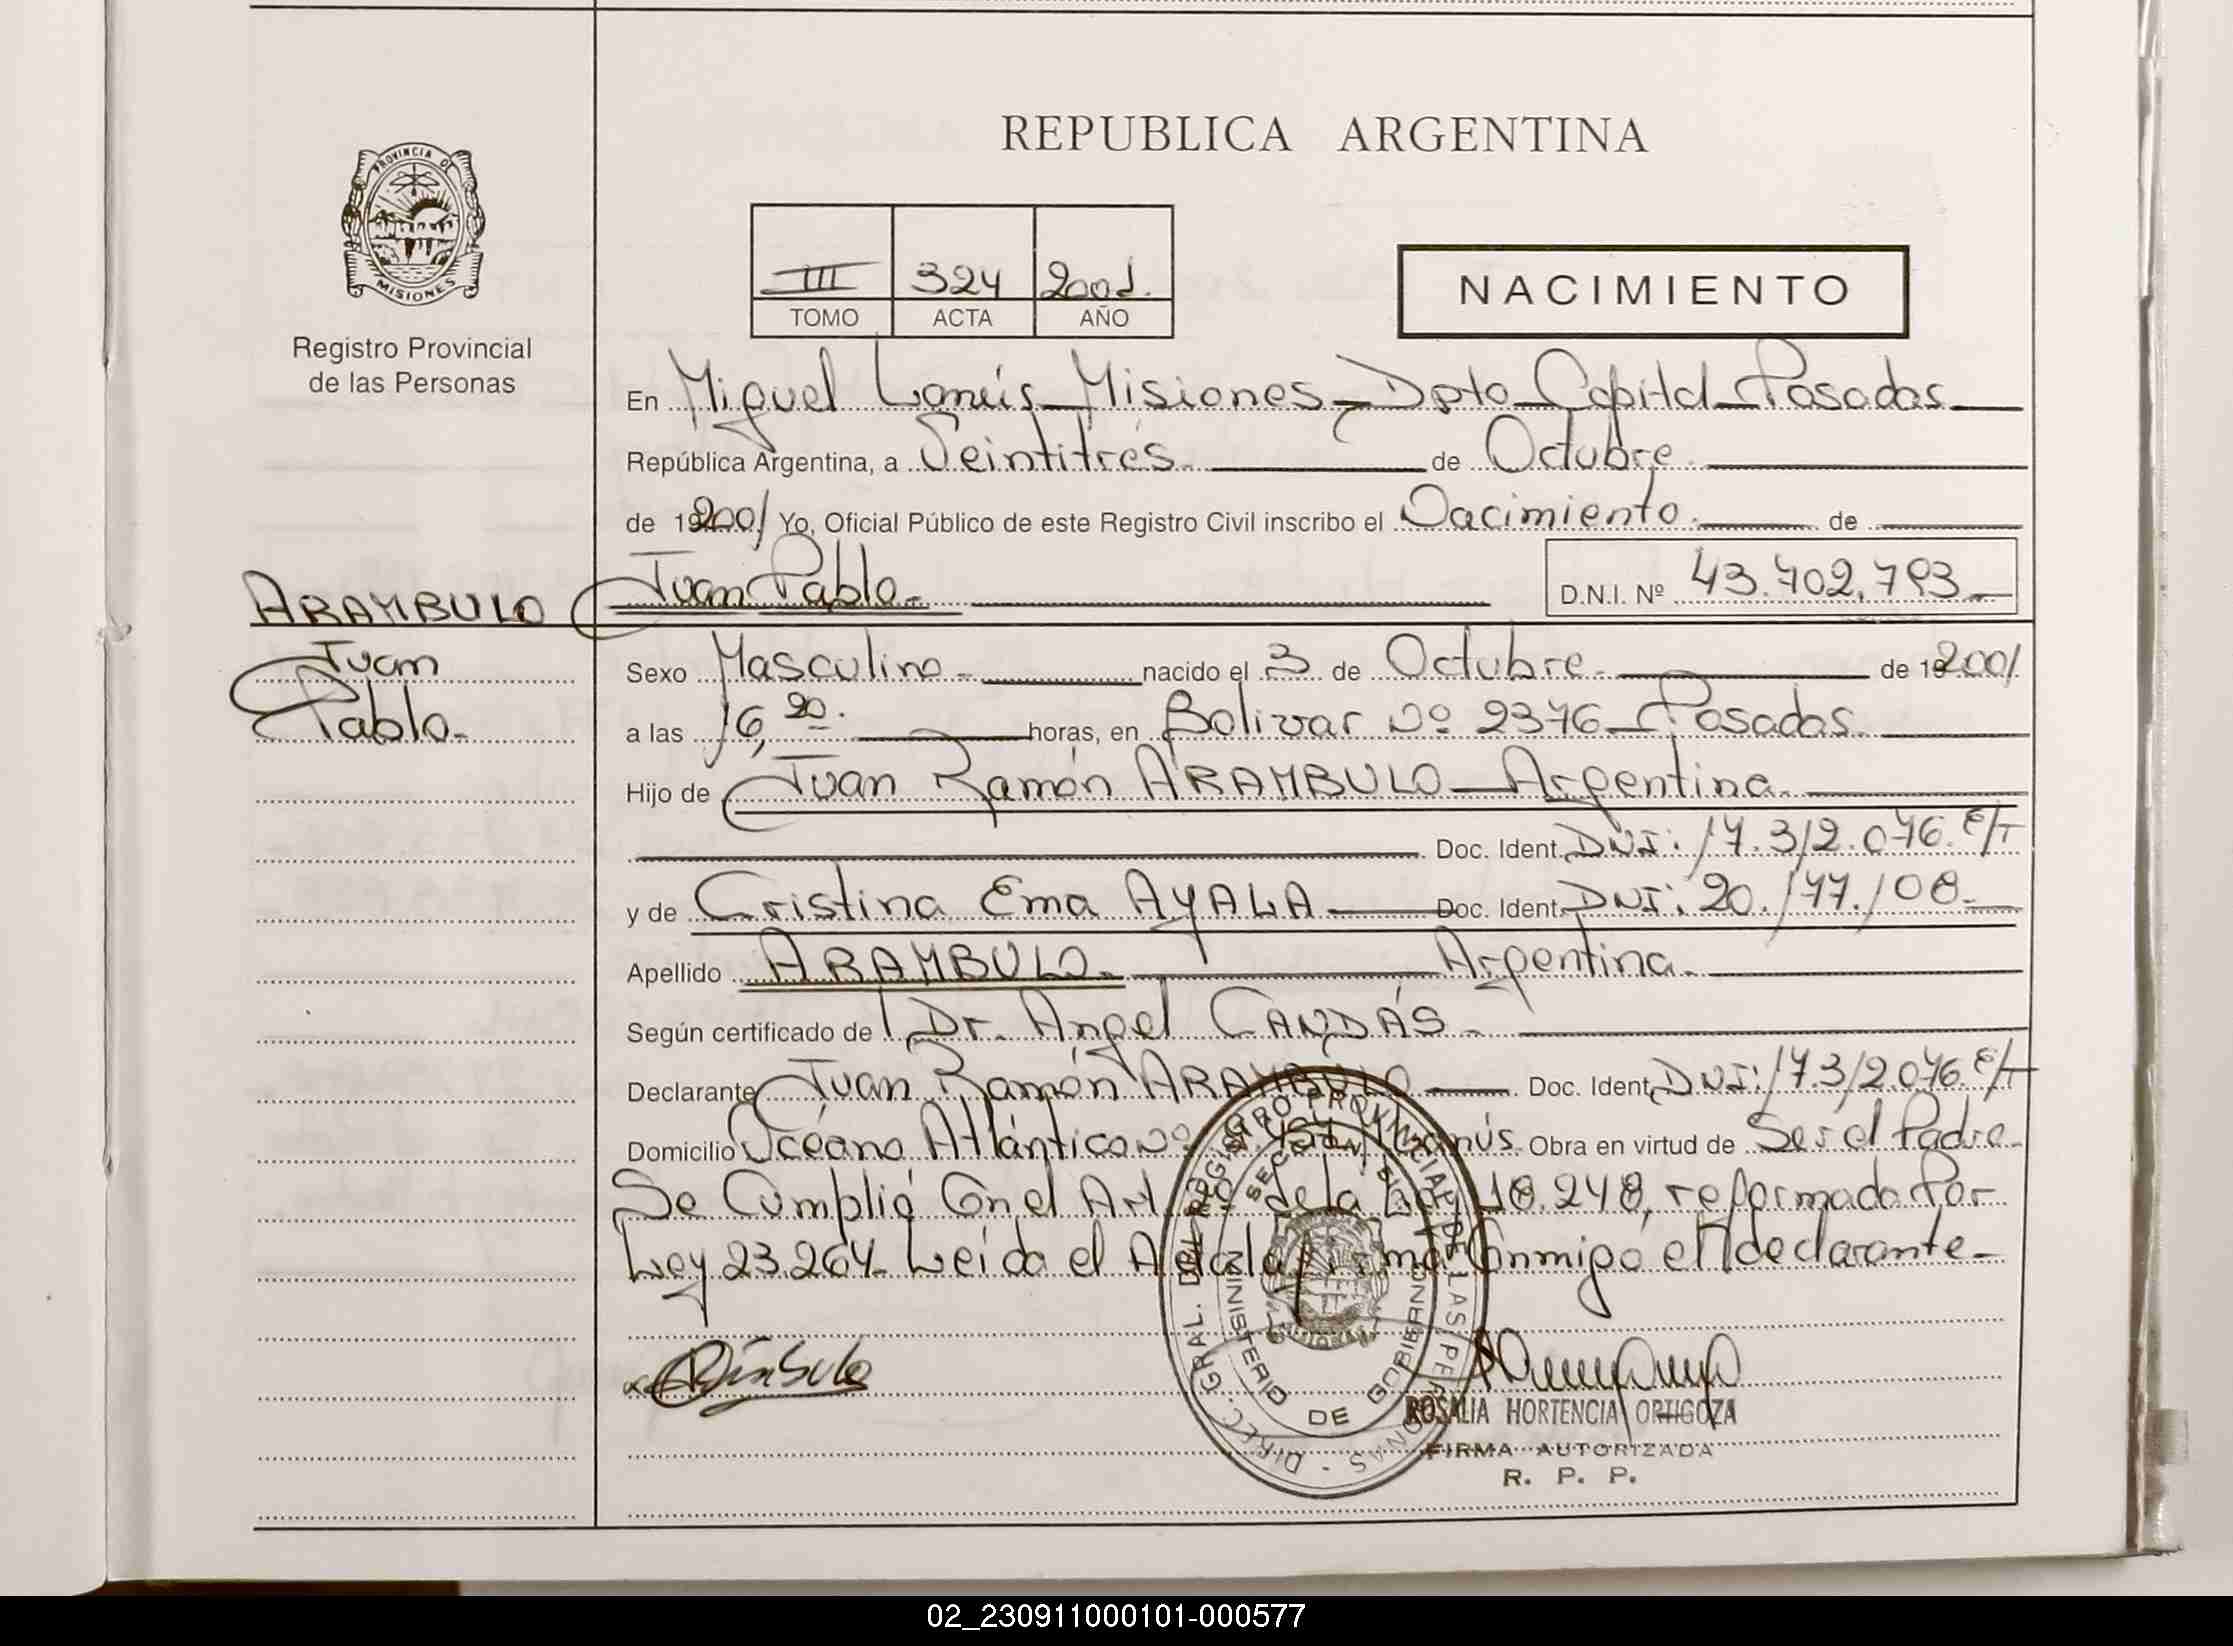 REPUBLICA ARGENTINA
PROVINCIA DE
MISIONES
Registro Provincial
de las Personas
III 324 2001.
TOMO ACTA AÑO
NACIMIENTO
En Miguel Lanús - Misiones - Dpto Capital - Posadas
República Argentina, a Veintitrés de Octubre
de 192001 Yo, Oficial Público de este Registro Civil inscribo el Nacimiento. de
ARAMBULO
Juan
Pablo.
Juan Pablo. D.N.I. Nº 43.702.793
Sexo Masculino nacido el 3 de Octubre de 192001
a las 16,20. horas, en Bolivar Nº 2376 - Posadas.
Hijo de Juan Ramón ARAMBULO - Argentina.
Doc. Ident. DNI: 17.312.076. E/T
y de Cristina Ema AYALA Doc. Ident. DNI: 20.177.108.
Apellido ARAMBULO. Argentina.
Según certificado de Dr. Angel CANDÁS
Declarante Juan Ramón ARAMBULO Doc. Ident. DNI: 17.312.076 E/T
Domicilio Océano Atlántico Nº Lanús. Obra en virtud de Ser el Padre.
Se Cumplió Con el Art de la Ley 18.248, reformado Por
Ley 23.264. Leída el Acta la firma Conmigo el declarante
DIREC. GRAL. DEL REGISTRO PROVINCIAL DE LAS PERSONAS
MINISTERIO DE GOBIERNO
ROSALIA HORTENCIA ORTIGOZA
FIRMA AUTORIZADA
R. P. P.
02_230911000101-000577